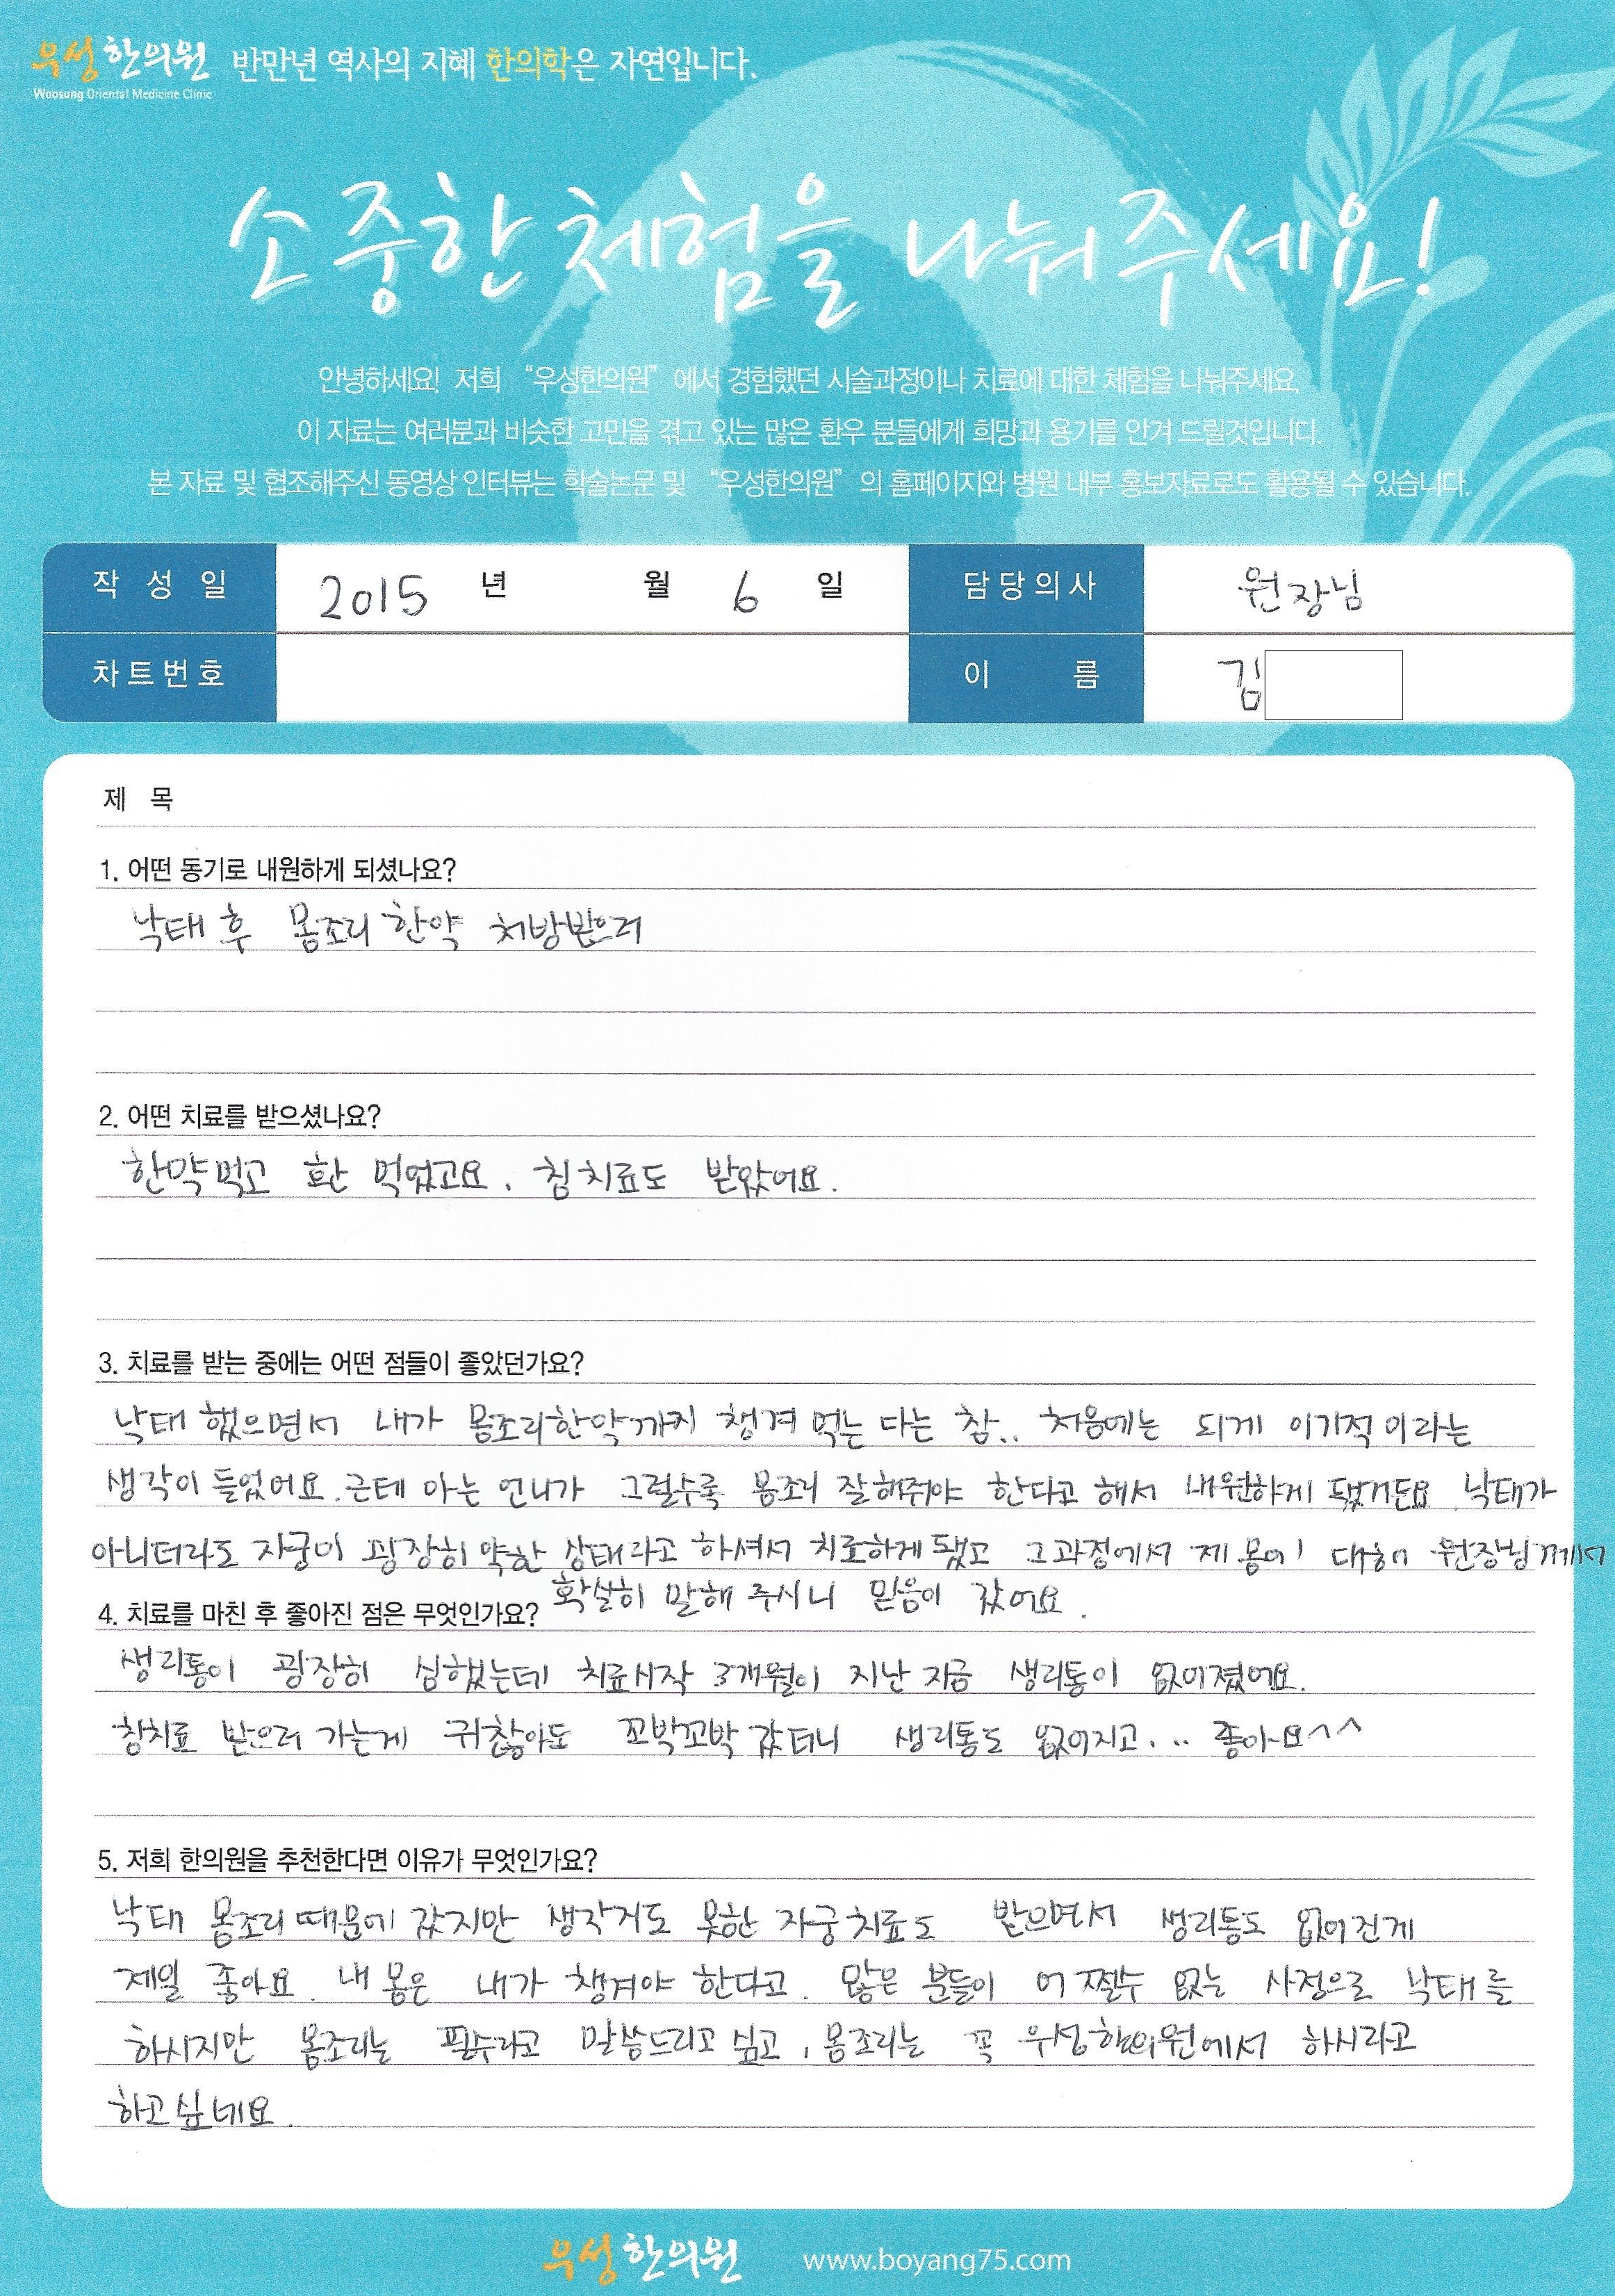 우성한의원 반만년 역사의 지혜 한의학은 자연입니다.
Woosung Oriental Medicine Clinic
소중한 체험을 나눠주세요!
안녕하세요! 저희 “우성한의원” 에서 경험했던 시술과정이나 치료에 대한 체험을 나눠주세요.
이 자료는 여러분과 비슷한 고민을 겪고 있는 많은 환우 분들에게 희망과 용기를 안겨 드릴것입니다.
본 자료 및 협조해주신 동영상 인터뷰는 학술논문 및 “우성한의원” 의 홈페이지와 병원 내부 홍보자료로도 활용될 수 있습니다.
작성일 2015 년 월 6 일 담당의사 원장님
차트번호 이름 김
제 목
1. 어떤 동기로 내원하게 되셨나요?
낙태 후 몸조리 한약 처방받으러
2. 어떤 치료를 받으셨나요?
한약먹고 환 먹었고요. 침치료도 받았어요.
3. 치료를 받는 중에는 어떤 점들이 좋았던가요?
낙태 했으면서 내가 몸조리한약까지 챙겨 먹는 다는 참.. 처음에는 되게 이기적이라는
생각이 들었어요. 근데 아는 언니가 그럴수록 몸조리 잘해줘야 한다고 해서 내원하게 됐거든요. 낙태가
아니더라도 자궁이 굉장히 약한 상태라고 하셔서 치료하게 됐고 그과정에서 제 몸에 대해 원장님께서
확실히 말해 주시니 믿음이 갔어요.
4. 치료를 마친 후 좋아진 점은 무엇인가요?
생리통이 굉장히 심했는데 치료시작 3개월이 지난 지금 생리통이 없어졌어요.
침치료 받으러 가는게 귀찮아도 꼬박꼬박 갔더니 생리통도 없어지고... 좋아요^^
5. 저희 한의원을 추천한다면 이유가 무엇인가요?
낙태 몸조리 때문에 갔지만 생각지도 못한 자궁치료도 받으면서 생리통도 없어진게
제일 좋아요. 내 몸은 내가 챙겨야 한다고. 많은 분들이 어쩔수 없는 사정으로 낙태를
하시지만 몸조리는 필수라고 말씀드리고 싶고, 몸조리는 꼭 우성한의원에서 하시라고
하고싶네요.
우성한의원 www.boyang75.com